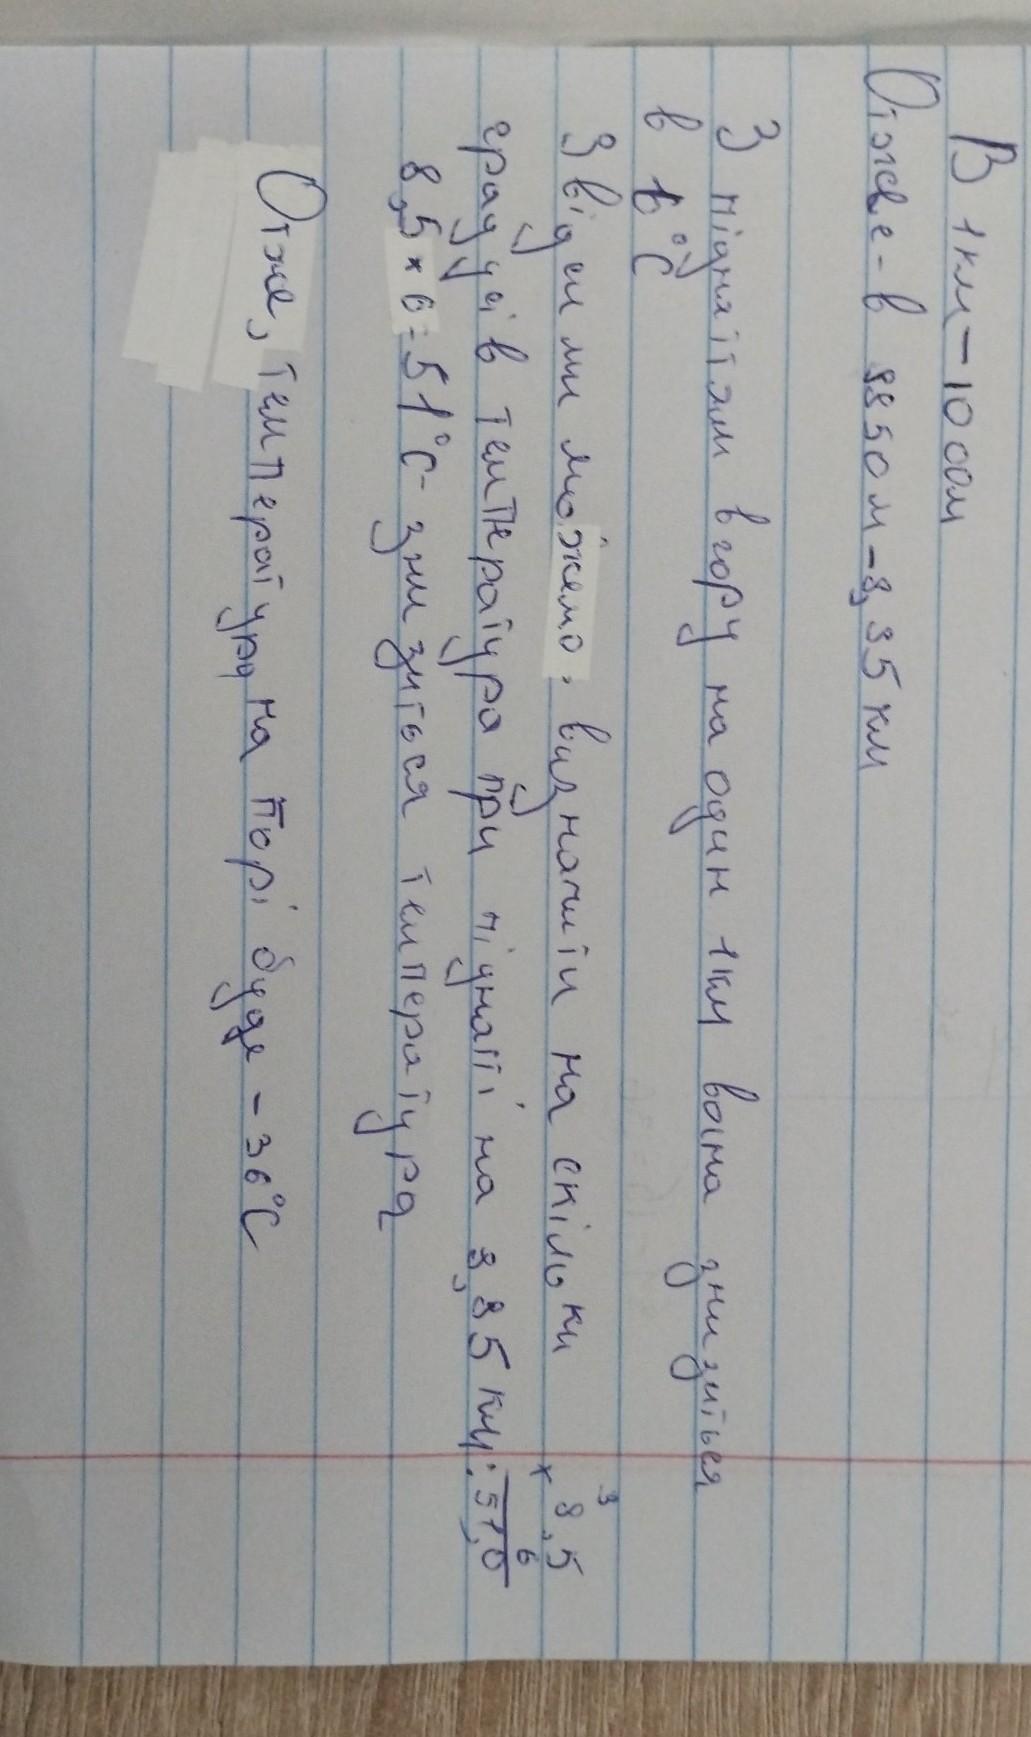 В 1км – 1000м
Отже - в 8850 м - 8,85 км
З підняттям вгору на один 1км вона знизиться
в 6°C
Звідси ми можемо визначити на скільки
градусів температура при піднятті на 8,85 км:
8,5 × 6 = 51°C - знизиться температура
Отже, температура на горі буде - 36°C
3
8,5
×
6
51,0